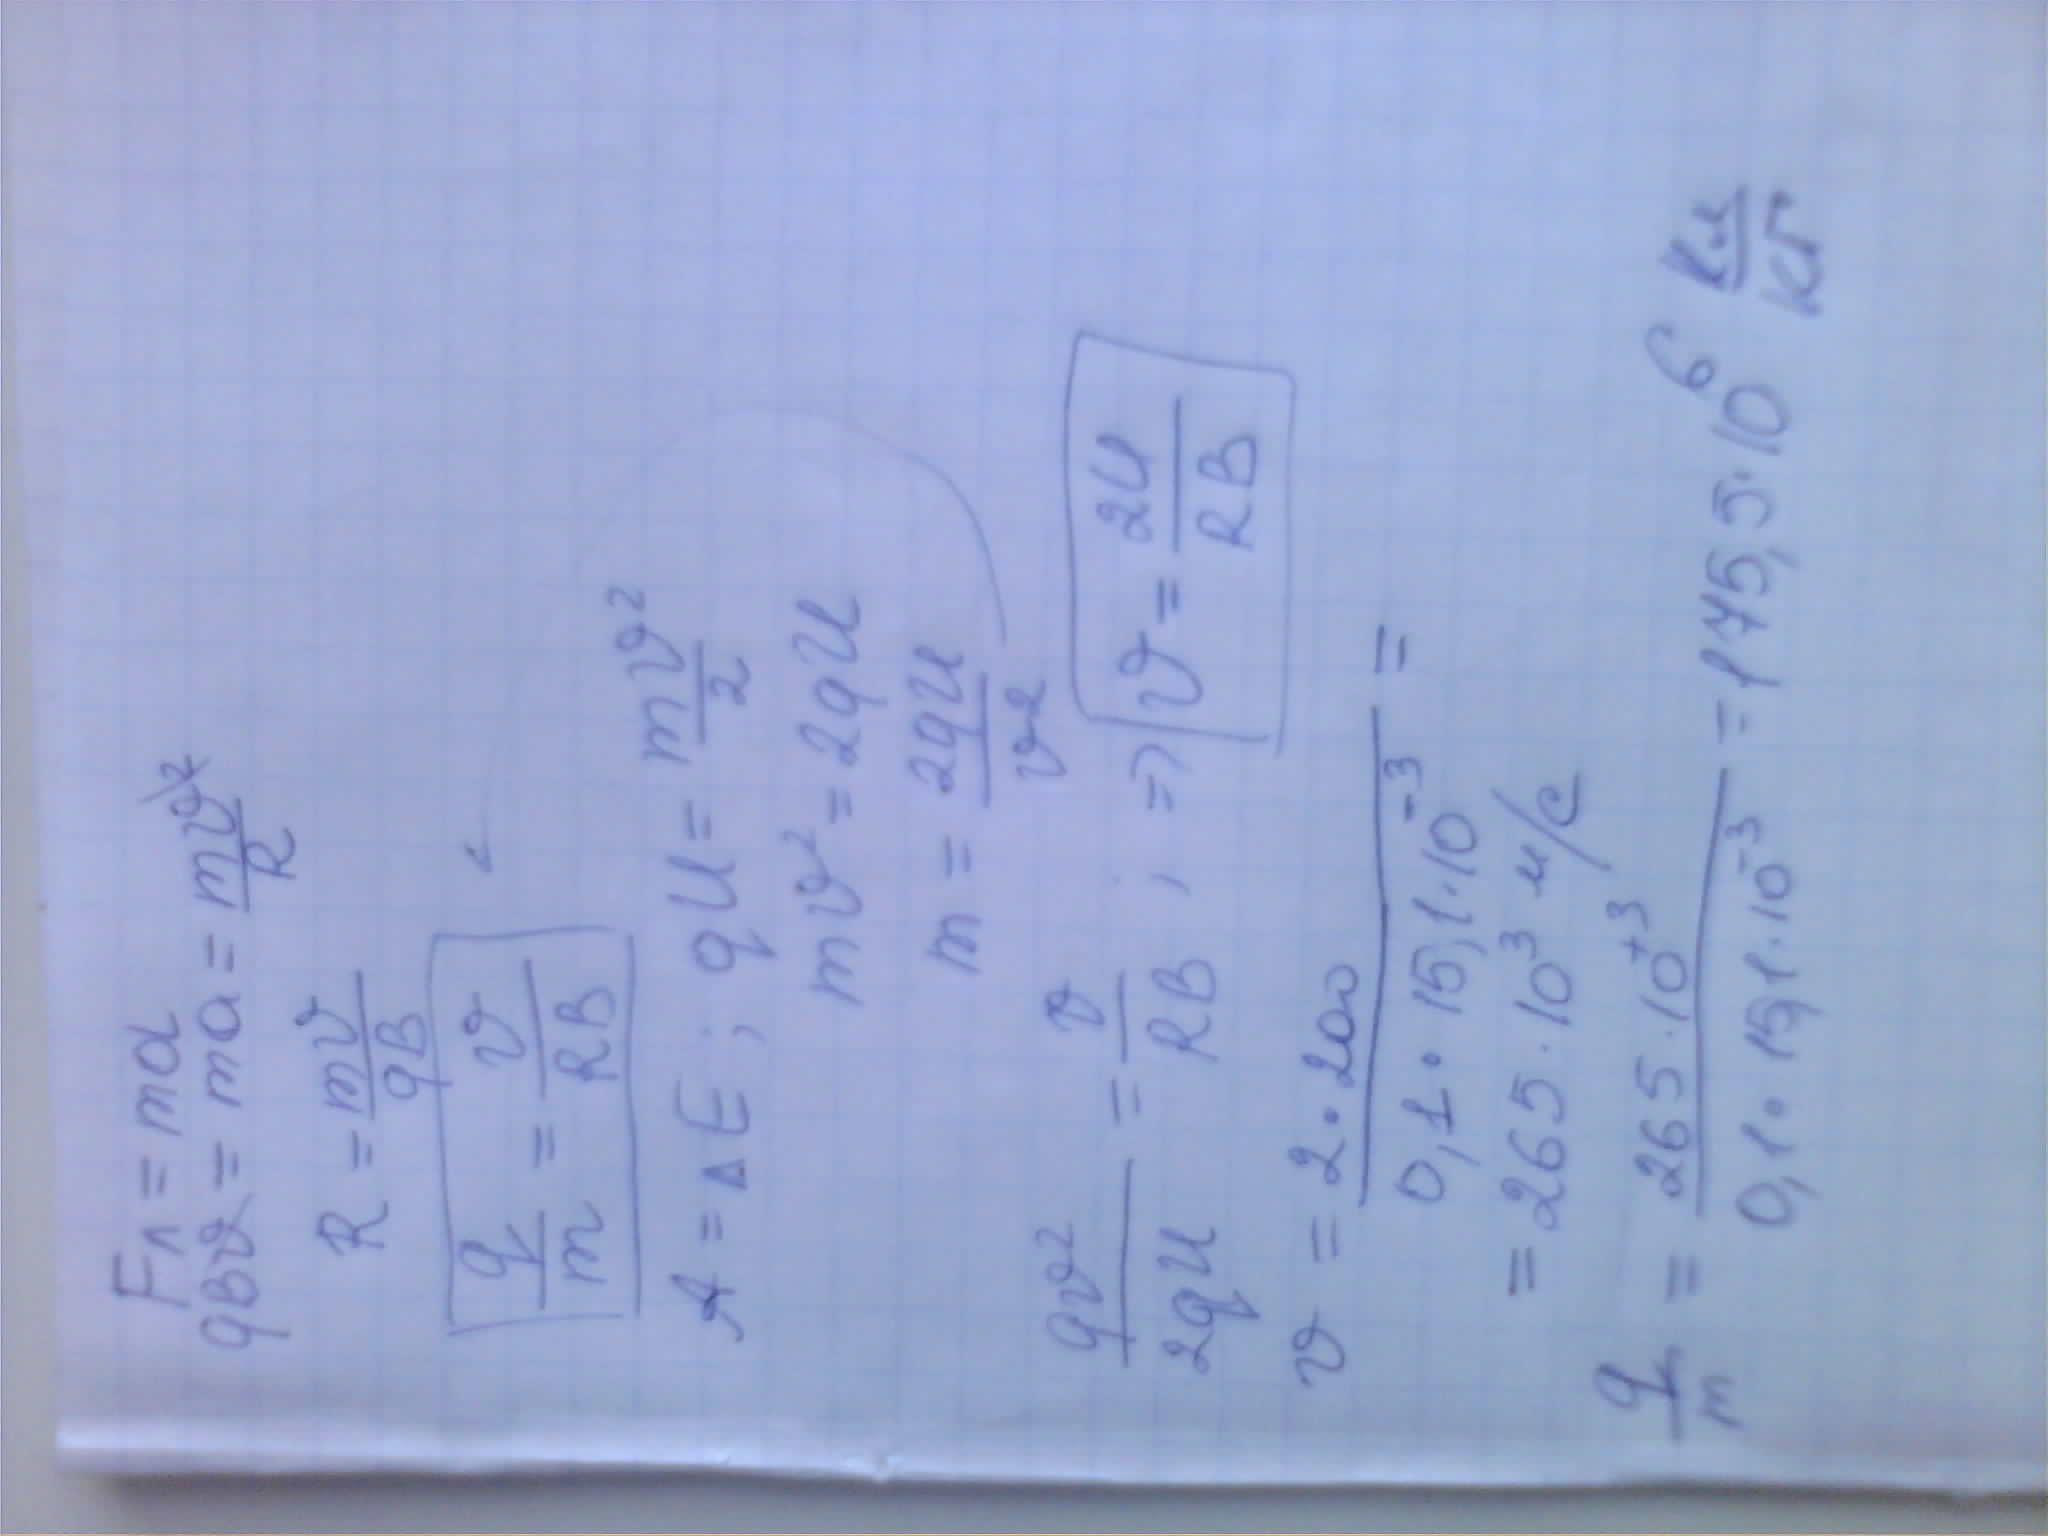 Fл = ma
qBv = ma = mv²/R
R = mv/qB
q/m = v/RB
A = ΔE ; qU = mv²/2
mv² = 2qU
m = 2qU/v²
qv²/2qU = v/RB ; => v = 2U/RB
v = 2·200/0,1·15,1·10⁻³ =
= 265·10³ м/с
q/m = 265·10⁺³/0,1·15,1·10⁻³ = 175,5·10⁶ Кл/кг